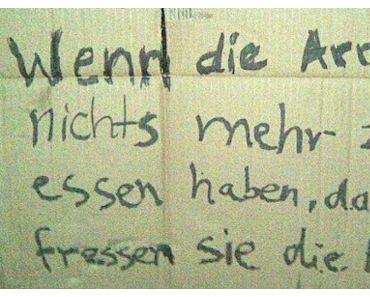 Wenn die Arr
nichts mehr z
essen haben, da
fressen sie die